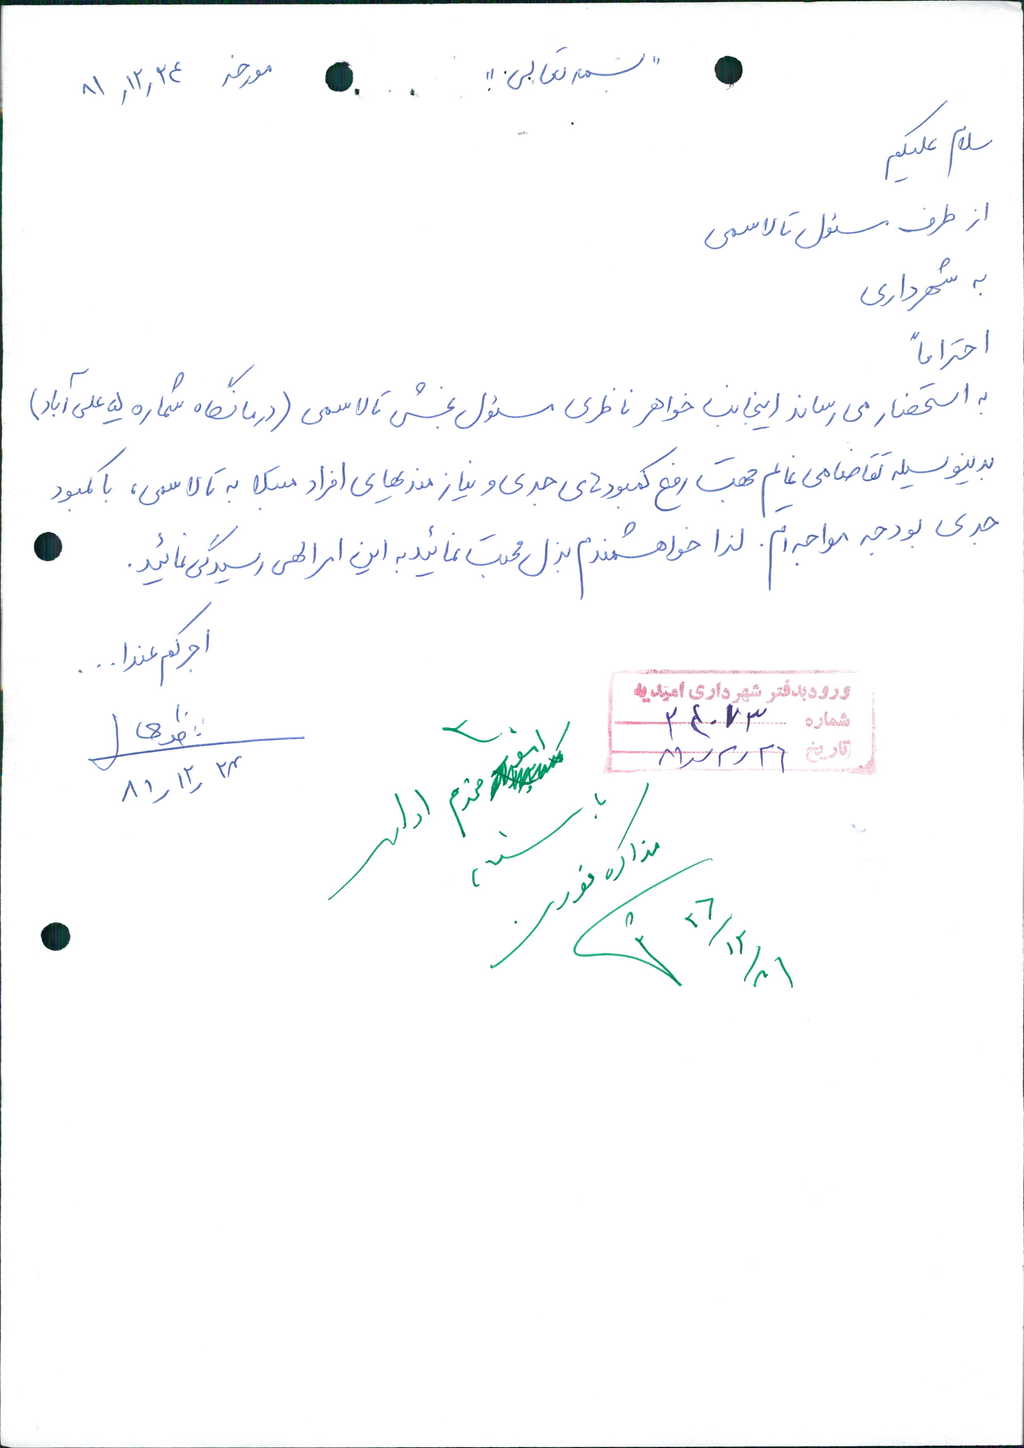 "بسمه تعالی" مورخه ۸۱٫۱۲٫۲۴
سلام علیکم
از طرف مسئول تالاسمی
به شهرداری
احتراماً
به استحضار می رساند اینجانب خواهر ناظری مسئول بخش تالاسمی (درمانگاه شماره ۵ علی آباد)
بدینوسیله تقاضا می نمایم جهت رفع کمبودهای جدی و نیازمندیهای افراد مبتلا به تالاسمی، با کمبود
جدی بودجه مواجه ام. لذا خواهشمندم بذل محبت نمائید به این امر الهی رسیدگی نمائید.
اجرکم عندا...
۸۱٫۱۲٫۲۴
ورود بدفتر شهرداری امیدیه
شماره
تاریخ
محترم اداری
مذاکره فوری
۸۱/۱۲/۲۶